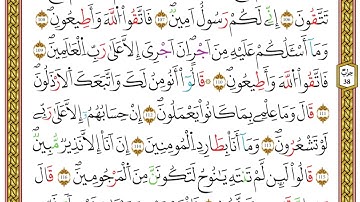 تَتَّقُونَ ١٠٦ إِنِّے لَكُمْ رَسُولٌ أَمِينٌ ١٠٧ فَاتَّقُواْ اُللَّهَ وَأَطِيعُونِ ١٠٨
وَمَآ أَسْـَٔلُكُمْ عَلَيْهِ مِنْ أَجْرٍ اِنْ أَجْرِىَ إِلَّا عَلَىٰ رَبِّ اِلْعَٰلَمِينَ ١٠٩
فَاتَّقُواْ اُللَّهَ وَأَطِيعُونِ ١١٠ قَالُوٓاْ أَنُومِنُ لَكَ وَاتَّبَعَكَ اَلَارْذَلُونَ ١١١
قَالَ وَمَا عِلْمِے بِمَا كَانُواْ يَعْمَلُونَ ١١٢ إِنْ حِسَابُهُمُۥٓ إِلَّا عَلَىٰ رَبِّے
لَوْ تَشْعُرُونَ ١١٣ وَمَآ أَنَا بِطَارِدِ اِلْمُومِنِينَ ١١٤ إِنَ اَنَا إِلَّا نَذِيرٌ مُّبِينٌ ١١٥
قَالُواْ لَئِن لَّمْ تَنتَهِ يَٰنُوحُ لَتَكُونَنَّ مِنَ اَلْمَرْجُومِينَ ١١٦ قَالَ
حزب
38